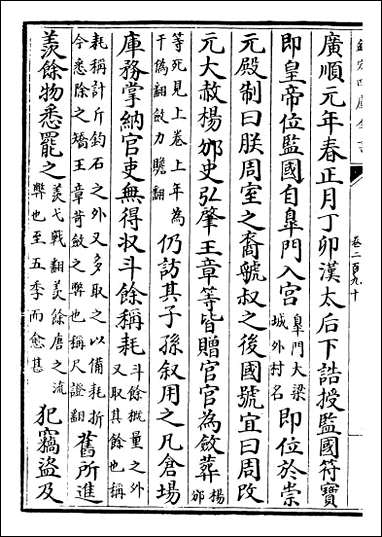 欽定四庫全書
卷二百九十
廣順元年春正月丁卯漢太后下誥授監國符寶
即皇帝位監國自臯門入宮臯門大梁城外村名即位於崇
元殿制曰朕周室之裔虢叔之後國號宜曰周改
元大赦楊邠史弘肇王章等皆贈官官為斂葬楊邠
等死見上卷上年為于偽翻斂力贍翻仍訪其子孫叙用之凡倉場
庫務掌納官吏無得収斗餘稱耗斗餘槩量之外又取其餘也稱
耗稱計斤鈞石之外又多取之以備耗折今悉除之矯王章苛斂之弊也稱尺證翻舊所進
羨餘物悉罷之羨弋戰翻羨餘唐之流弊也至五季而愈甚犯竊盗及